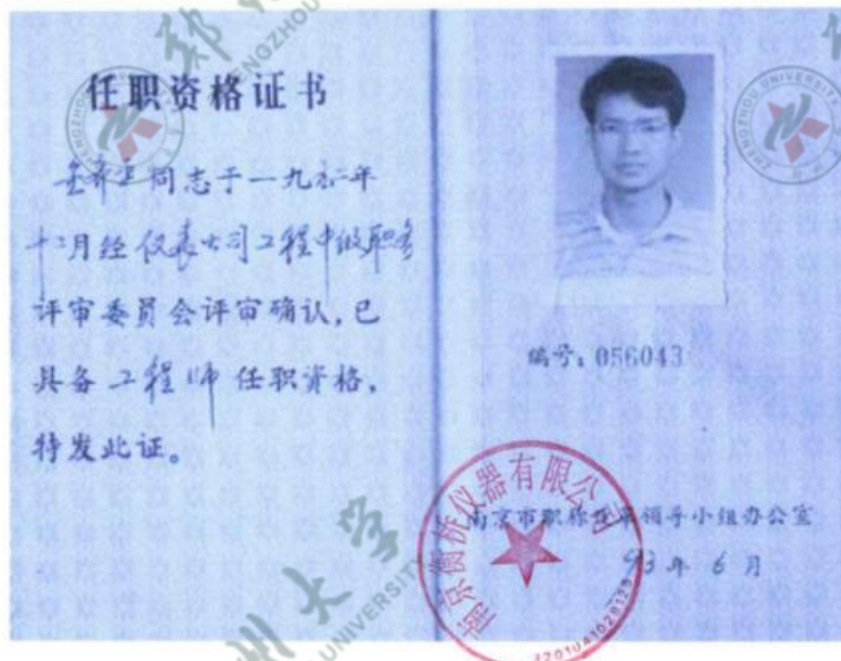 任职资格证书
同志于一九九二年
十二月经仪表公司工程中级职务
评审委员会评审确认,已
具备 工程师 任职资格,
特发此证。
编号:056043
南京市职称改革领导小组办公室
93年6月
南京衡桥仪器有限公司
郑州大学
ZHENGZHOU UNIVERSITY